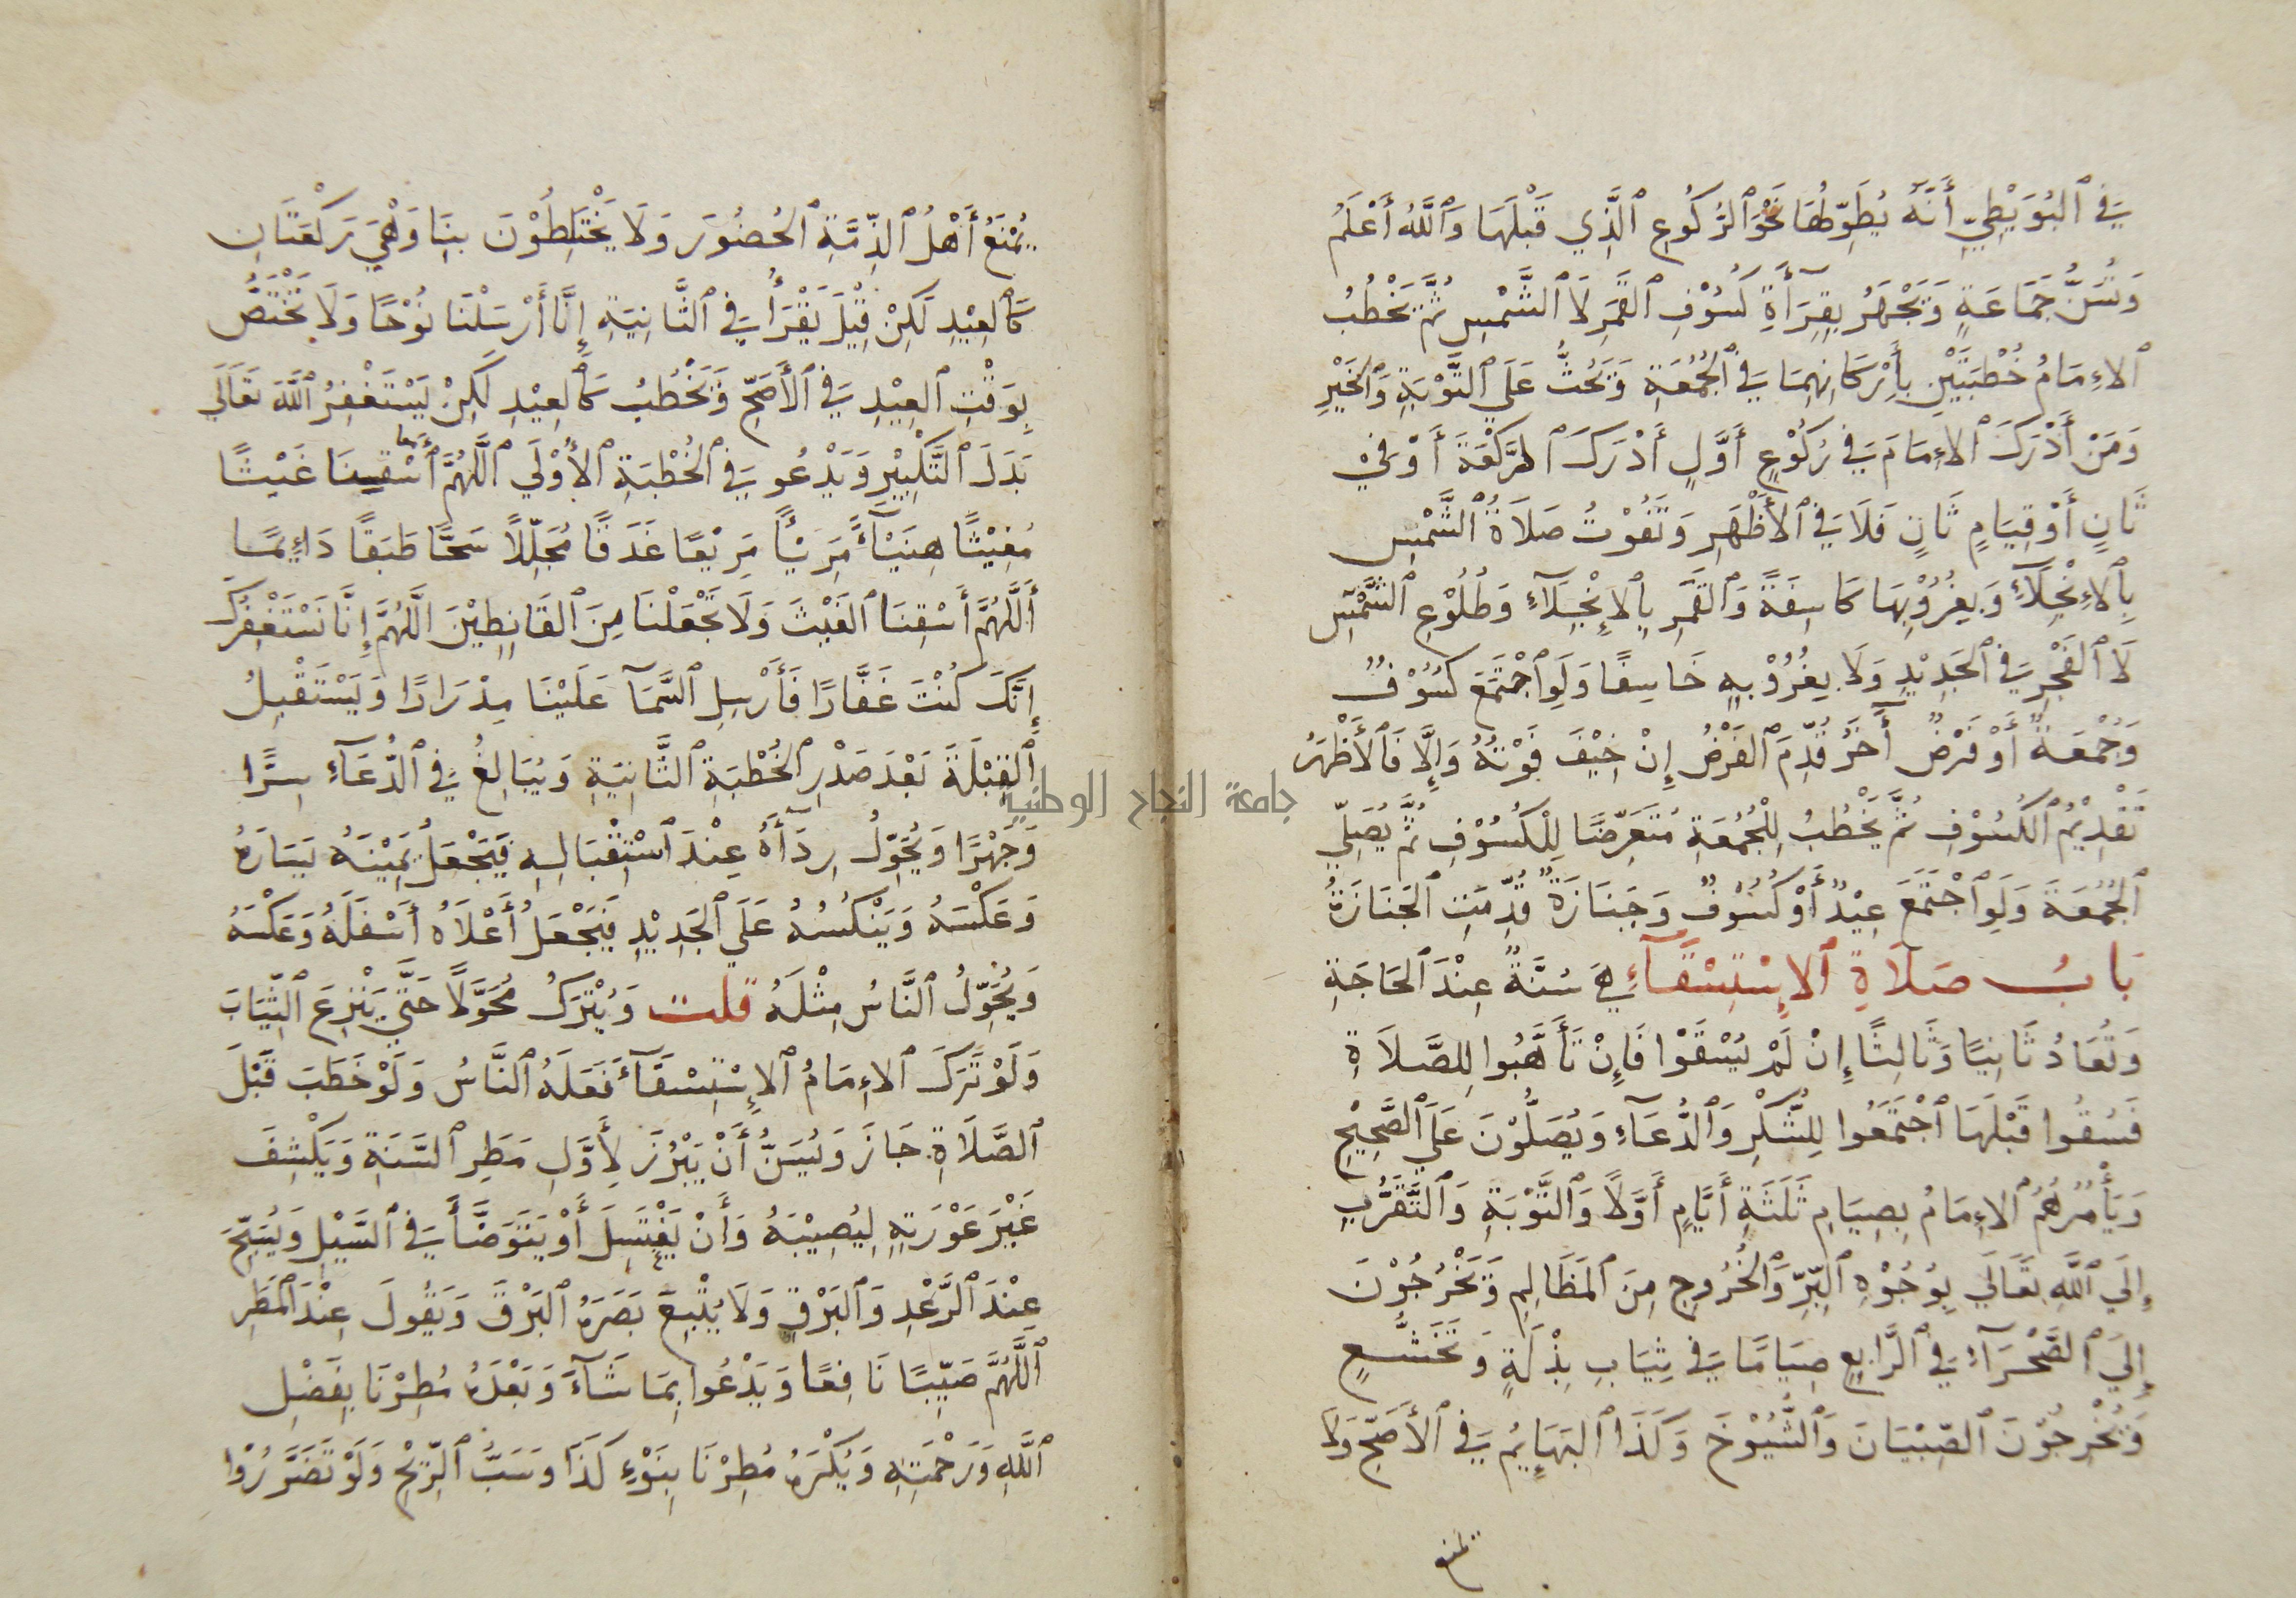 فِي ٱلْبُوَيْطِيِّ أَنَّهُ يُطَوِّلُهَا نَحْوَ ٱلرُّكُوعِ ٱلَّذِي قَبْلَهَا وَٱللَّهُ أَعْلَمُ
وَتُسَنُّ جَمَاعَةٍ وَيَجْهَرُ بِقِرَآءَةِ كُسُوْفِ ٱلْقَمَرِ لَا ٱلشَّمْسِ ثُمَّ يَخْطُبُ
ٱلْاِمَامُ خُطْبَتَيْنِ بِأَرْكَانِهِمَا فِي ٱلْجُمُعَةِ وَيَحُثُّ عَلَي ٱلتَّوْبَةِ وَٱلْخَيْرِ
وَمَنْ أَدْرَكَ ٱلْاِمَامَ فِي رُكُوْعٍ أَوَّلٍ أَدْرَكَ ٱلرَّكْعَةَ أَوْ فِيْ
ثَانٍ أَوْ قِيَامٍ ثَانٍ فَلَا فِي ٱلْأَظْهَرِ وَتَفُوْتُ صَلَاةُ ٱلشَّمْسِ
بِٱلْاِنْجِلَآءِ وَبِغُرُوْبِهَا كَاسِفَةً وَٱلْقَمَرِ بِٱلْاِنْجِلَآءِ وَطُلُوْعِ ٱلشَّمْسِ
لَا ٱلْفَجْرِ فِي ٱلْجَدِيْدِ وَلَا بِغُرُوْبِهِ خَاسِفًا وَلَوِ ٱجْتَمَعَ كُسُوْفٌ
وَجُمْعَةٌ أَوْ فَرْضٌ آخَرُ قُدِّمَ ٱلْفَرْضُ إِنْ خِيْفَ فَوْتُهُ وَإِلَّا فَٱلْأَظْهَرُ
تَقْدِيْمُ ٱلْكُسُوْفِ ثُمَّ يَخْطُبُ لِلْجُمُعَةِ مُتَعَرِّضًا لِلْكُسُوْفِ ثُمَّ يُصَلِّي
ٱلْجُمُعَةَ وَلَوِ ٱجْتَمَعَ عِيْدٌ أَوْ كُسُوْفٌ وَجَنَازَةٌ قُدِّمَتِ ٱلْجَنَازَةُ
بَابُ صَلَاةِ ٱلْاِسْتِسْقَآءِ هِيَ سُنَّةٌ عِنْدَ ٱلْحَاجَةِ
وَتُعَادُ ثَانِيًا وَثَالِثًا إِنْ لَمْ يُسْقَوْا فَإِنْ تَأَهَّبُوا لِلصَّلَاةِ
فَسُقُوا قَبْلَهَا ٱجْتَمَعُوا لِلشُّكْرِ وَٱلدُّعَآءِ وَيُصَلُّوْنَ عَلَي ٱلصَّحِيْحِ
وَيَأْمُرُهُمُ ٱلْاِمَامُ بِصِيَامِ ثَلَثَةِ أَيَّامٍ أَوَّلًا وَٱلتَّوْبَةِ وَٱلتَّقَرُّبِ
إِلَي ٱللَّهِ تَعَالَي بِوُجُوْهِ ٱلْبِرِّ وَٱلْخُرُوجِ مِنَ ٱلْمَظَالِمِ وَيَخْرُجُوْنَ
إِلَيَ ٱلصَّحْرَآءِ فِي ٱلرَّابِعِ صِيَامًا فِي ثِيَابِ بِذْلَةٍ وَتَخَشُّعٍ
وَيُخْرِجُوْنَ ٱلصِّبْيَانَ وَٱلشُّيُوْخَ وَكَذَا ٱلْبَهَايِمُ فِي ٱلْأَصَحِّ وَلَا
يمنع
يُمْنَعُ أَهْلُ ٱلذِّمَّةِ ٱلْحُضُوَرَ وَلَا يَخْتَلِطُوْنَ بِنَا وَهْيَ رَكْعَتَانِ
كَٱلْعِيْدِ لَكِنْ قِيْلَ يَقْرَأُ فِي ٱلثَّانِيَةِ إِنَّا أَرْسَلْنَا نُوْحًا وَلَا تَخْتَصُّ
بِوَقْتِ ٱلْعِيْدِ فِي ٱلْأَصَحِّ وَيَخْطُبُ كَٱلْعِيْدِ لَكِنْ يَسْتَغْفِرُ ٱللَّهَ تَعَالَي
بَدَلَ ٱلتَّكْبِيْرِ وَيَدْعُو فِي ٱلْخُطْبَةِ ٱلْأُوْلَي ٱللَّهُمَّ أَسْقِينَا غَيْثًا
مُغِيْثًا هَنِيْئًا مَرِيْئًا مَرِيْعًا غَدَقًا مُجَلِّلًا سَحًّا طَبَقًا دَائِمًا
أَللَّهُمَّ أَسْقِنَا ٱلْغَيْثَ وَلَا تَجْعَلْنَا مِنَ ٱلْقَانِطِيْنَ اللَّهُمَّ إِنَّا نَسْتَغْفِرُكَ
إِنَّكَ كُنْتَ غَفَّارًا فَأَرْسِلِ ٱلسَّمَآ عَلَيْنَا مِدْرَارًا وَيَسْتَقْبِلُ
ٱلْقِبْلَةَ بَعْدَ صَدْرِ ٱلْخُطْبَةِ ٱلثَّانِيَةِ وَيُبَالِغُ فِي ٱلدُّعَآءِ سِرًّا
وَجَهْرًا وَيُحَوِّلُ رِدَآءَهُ عِنْدَ ٱسْتِقْبَالِهِ فَيَجْعَلُ يَمِيْنَهُ يَسَارَهُ
وَعَكْسَهُ وَيَنْكُسُهُ عَلَي ٱلْجَدِيْدِ فَيَجْعَلُ أَعْلَاهُ أَسْفَلَهُ وَعَكْسَهُ
وَيُحَوِّلُ ٱلنَّاسُ مِثْلَهُ قلت وَيُتْرَكُ مُحَوَّلًا حَتَّي يَنْزِعَ ٱلثِّيَابَ
وَلَوْ تَرَكَ ٱلْاِمَامُ ٱلْاِسْتِسْقَآءَ فَعَلَهُ ٱلنَّاسُ وَلَوْ خَطَبَ قَبْلَ
ٱلصَّلَاةِ جَازَ وَيُسَنُّ أَنْ يَبْرُزَ لِأَوَّلِ مَطَرِ ٱلسَّنَةِ وَيَكْشِفَ
غَيْرَ عَوْرَتِهِ لِيُصِيْبَهُ وَأَنْ يَغْتَسِلَ أَوْ يَتَوَضَّأَ فِي ٱلسَّيْلِ وَيُسَبِّحَ
عِنْدَ ٱلرَّعْدِ وَٱلْبَرْقِ وَلَا يُتْبِعَ بَصَرَهُ ٱلْبَرْقَ وَيَقُولَ عِنْدَ ٱلْمَطَرِ
ٱللَّهُمَّ صَيِّبًا نَافِعًا وَيَدْعُوا بِمَا شَآءَ وَبَعْدَهُ مُطِرْنَا بِفَضْلِ
ٱللَّهِ وَرَحْمَتِهِ وَيُكْرَهُ مُطِرْنَا بِنَوْءِ كَذَا وَسَبُّ ٱلرِّيْحِ وَلَوْ تَضَرَّرُوْا
جامعة النجاح الوطنية